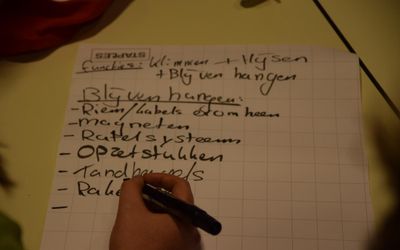 STAPLES
Functies: klimmen + Hijsen
+ Blijven hangen
Blijven hangen:
- Riem/kabels eromheen
- magneten
- Ratelsysteem
- Opzetstukken
- Tandbeugels
-
-